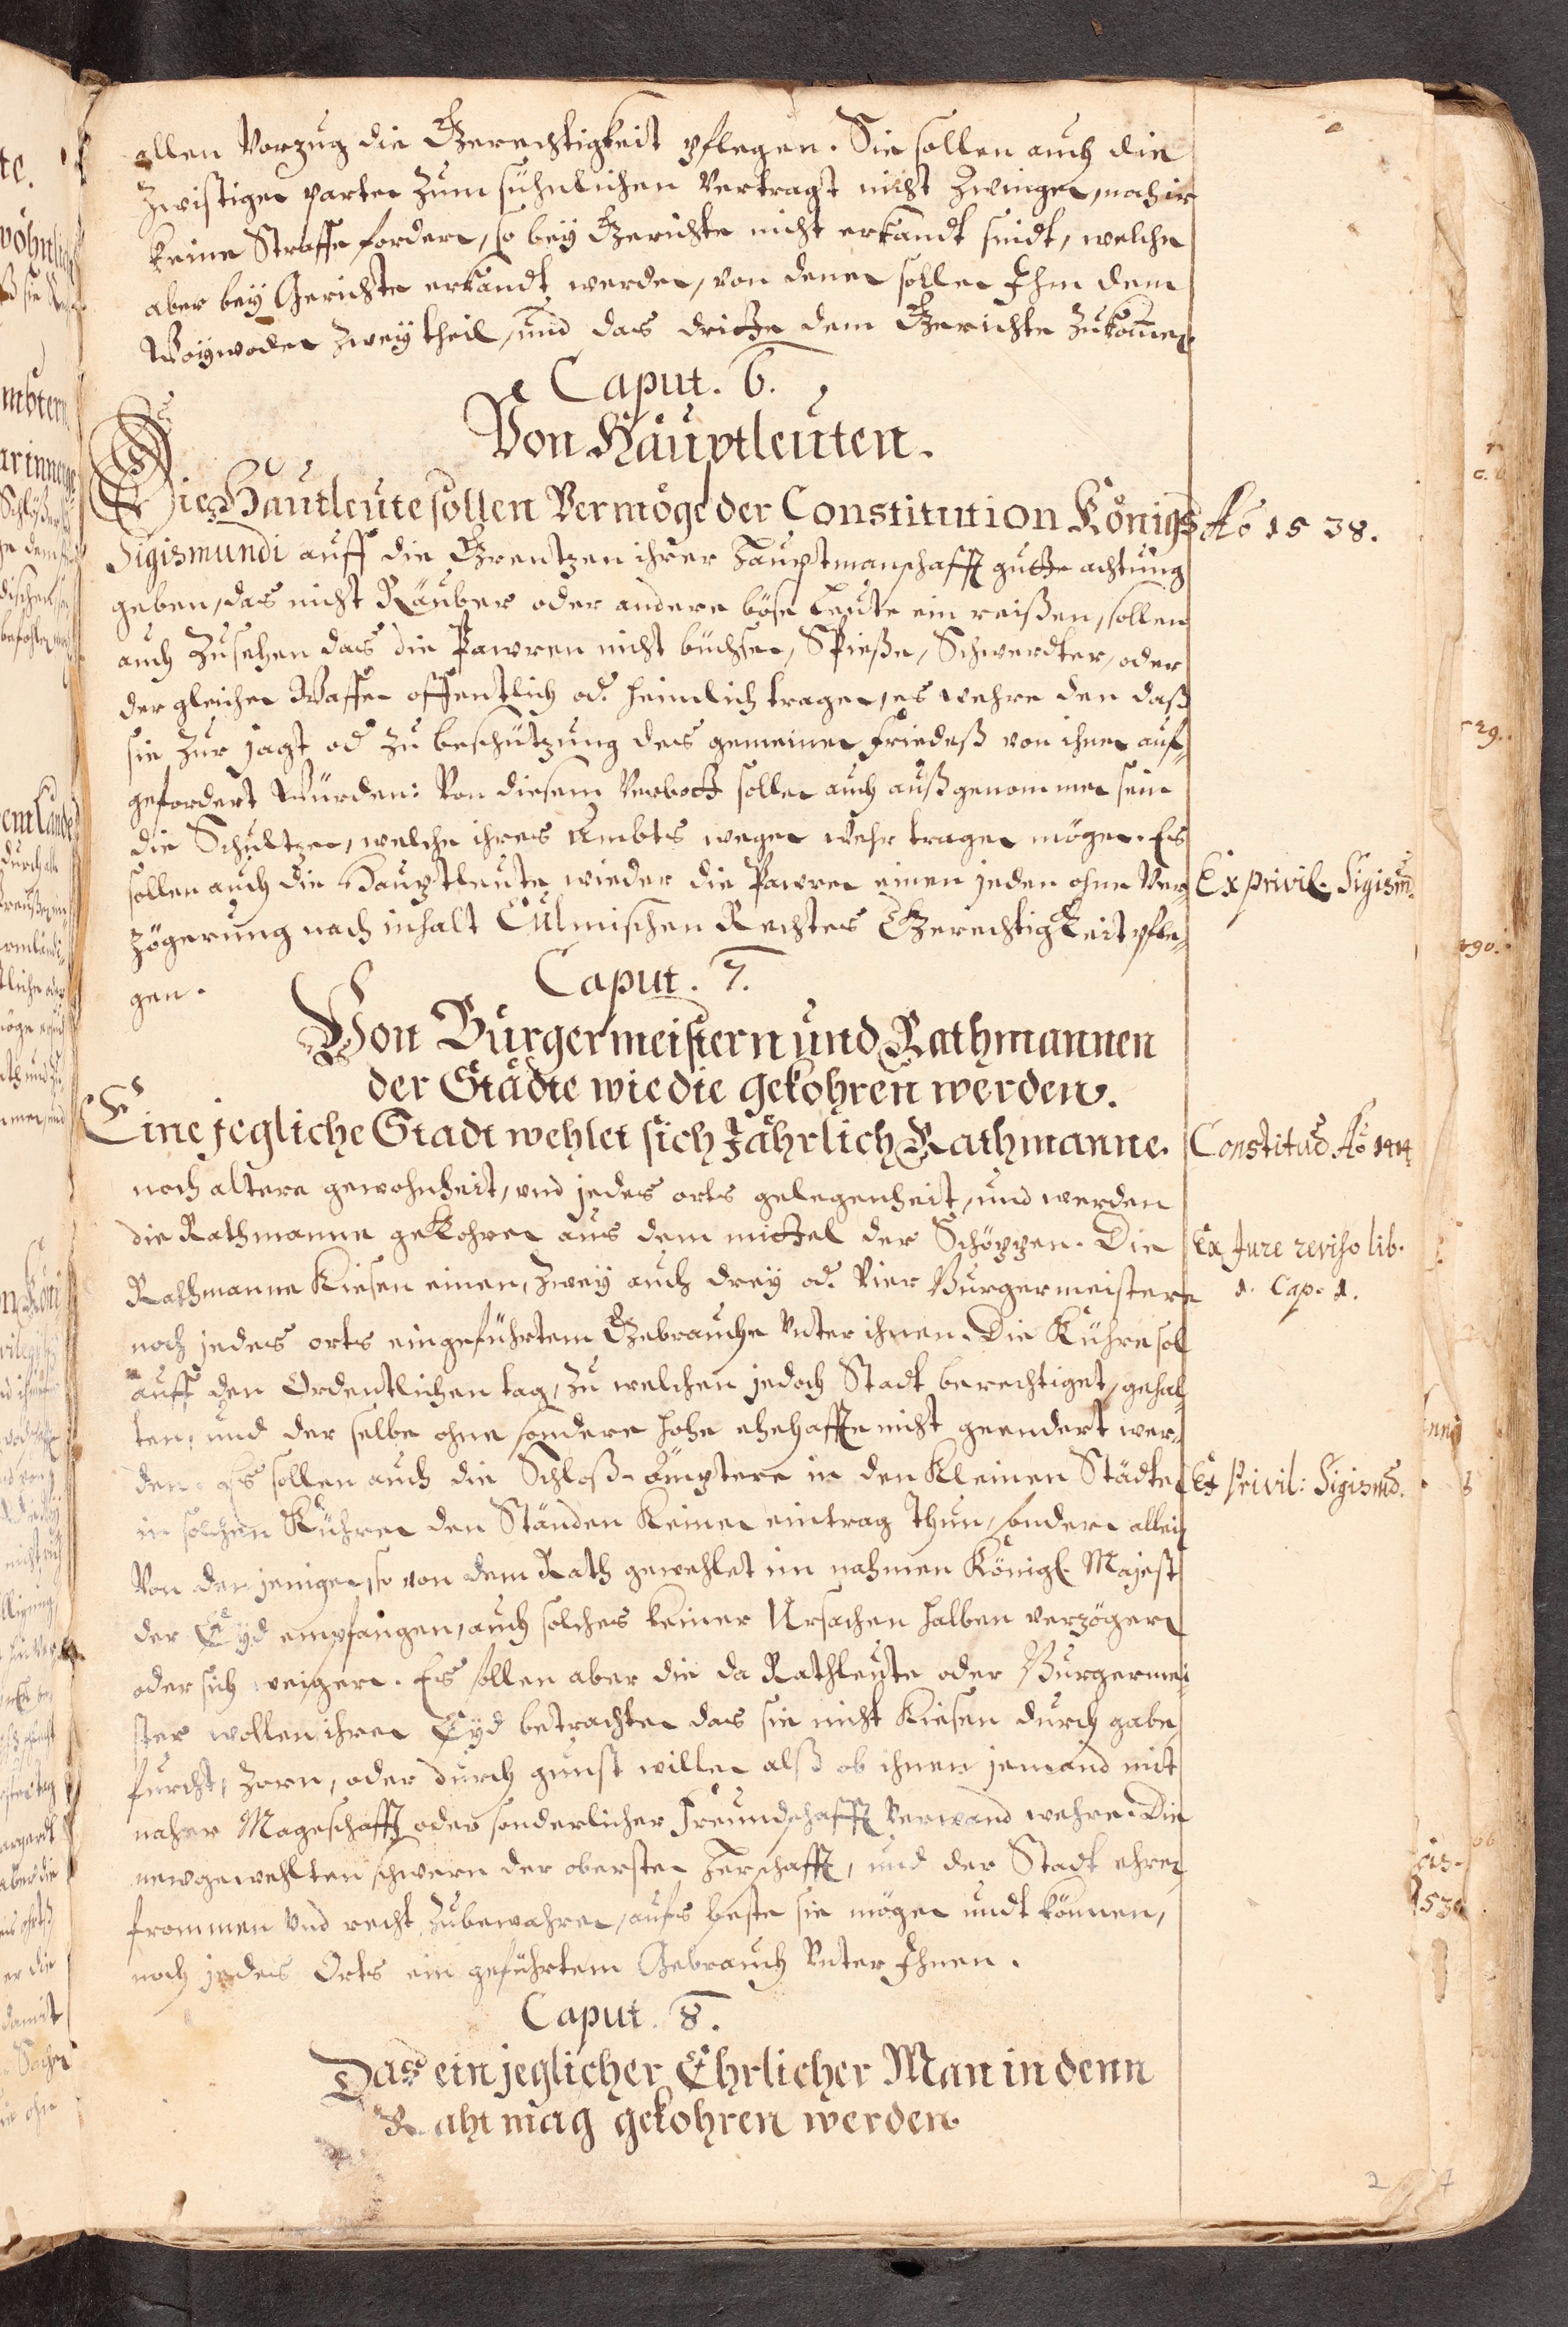 allen Vorzug die Gerechtigkeit pflegen. Sie sollen auch die
Zwistigen parten zum sühnlichen Vertragt nicht Zwingen, noch
keine Straffe fordern, so bey Gerichte nicht erkandt sindt, welche
aber bey Gerichte erkandt werden, von denen sollen Ihm dem
Woywoden zwey theil, und das dritte dem Gerichte zukom̄en.
Caput. 6.
Von Haüptleuten.
Die Hautleute sollen Vermöge der Constitution Königs
Aō 1538.
Sigismundi auff die Grentzen ihrer Hauptmanschafft gutte achtung
geben, das nicht Räuber oder andere böse Leute ein reißen, sollen
auch Zusehen das die Pawren nicht büchsen, Spieße, Schwerdter, oder
der gleichen Waffen offentlich od. heimlich tragen, es wehre den daß
sie zur jagt od zu beschützung des gemeinen friedeß von ihnen auf-
gefordert Würden: Von diesem Verbott sollen auch außgenommen sein
die Schultzen, welche ihres Ambts wegen Wehr tragen mögen. Es
sollen auch die Hauptleute wieder die Pawren einen jeden ohne Ver-
Ex privil. Sigism̄.
zögerung nach inhalt Culmischen Rechtes Gerechtigkeit pfle-
gen.
Caput. 7.
Von Bürgermeistern und Rathmannen
der Städte wie die gekohren werden.
Eine jegliche Stadt wehlet sich Jährlich Rathmanne.
Constitud Aō 1414
noch altern gewohnheit, und jedes orts gelegenheit, und werden
die Rathmanne gekohren aus dem mittel der Schöppen. Die
Ex Jure reviso lib.
Rathmanne Kiesen einen, Zwey auch drey od. Vier Burgermeistern
1. Cap. 1.
noch jedes orts eingeführtem Gebrauche Vnter ihnen. Die Kühre sol
auff den Ordentlichen tag, zu welchen jedoch Stadt berechtiget, gehal-
ten, und der selbe ohne sondere hohe ehehaffte nicht geendert wer-
den. Es sollen auch die Schloß-ämptere in den Kleinen Städten
Ex Privil: Sigism̄d.
in solchen Kühren den Ständen Keinen eintrag Thun, sondern allein
Von denjenigen, so von dem Rath gewehlet im nahmen Königl. Majest
der Eyd empfangen, auch solches keiner Ursachen halben verzögern
oder sich weigern. Es sollen aber die da Rathleute oder Burgermei-
ster wollen ihren Eyd betrachten das sie nicht Kiesen durch gabe
furcht, Zorn, oder durch gunst willen alß ob ihnen jemand mit
naher Mageschafft oder sonderlicher Freundschafft Verwand wehre. Die
newgewehlten schweren der obersten Herschafft, und der Stadt ehren
frommen Vnd recht zubewahren, aufs beste sie mögen undt können,
noch jedes Orts ein geführtem Gebrauch Vnter Ihnen.
Caput. 8.
Das ein jeglicher Ehrlicher Man in denn
Raht mag gekohren werden.